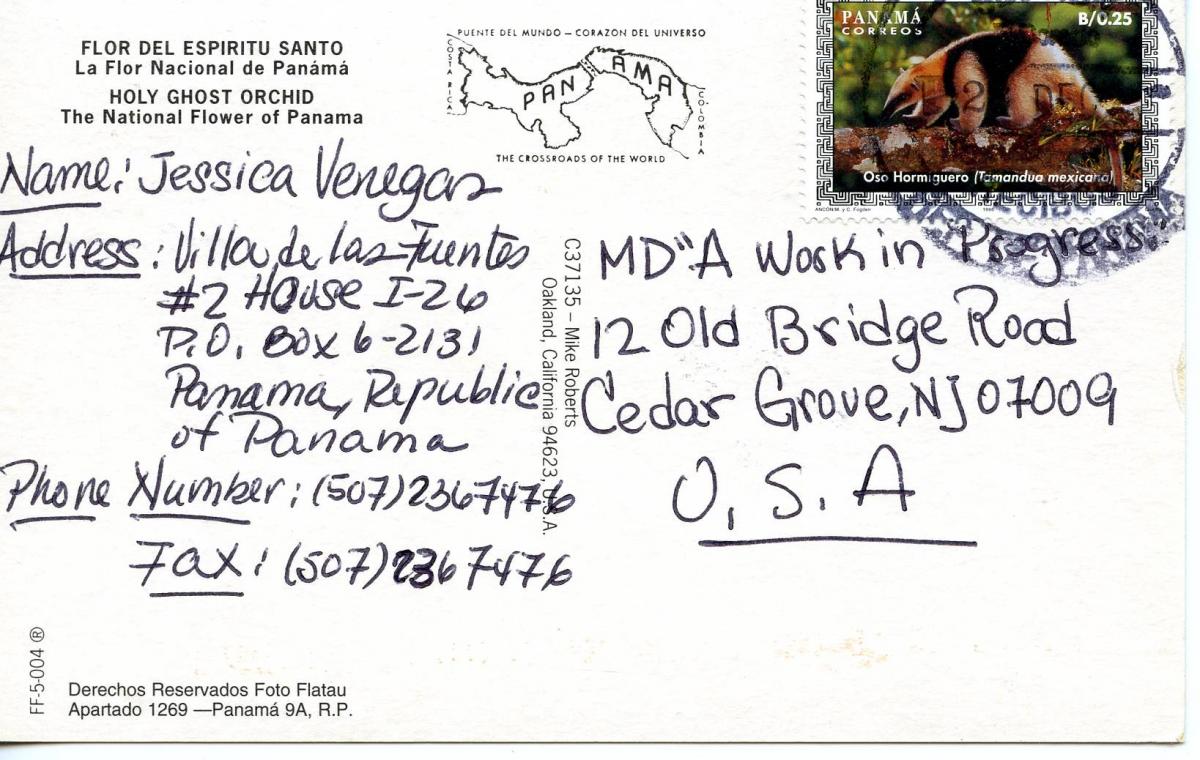 FLOR DEL ESPIRITU SANTO
La Flor Nacional de Panámá
HOLY GHOST ORCHID
The National Flower of Panama
PUENTE DEL MUNDO – CORAZÓN DEL UNIVERSO
COSTA RICA
PANAMA
COLOMBIA
THE CROSSROADS OF THE WORLD
PANAMÁ
CORREOS
B/0.25
2 DEC
Oso Hormiguero (Tamandua mexicana)
ANCON M. y C. Fogden
Name. Jessica Venegas
Address: Villa de las Fuentes
#2 House I-26
P.O. Box 6-2131
Panama, Republic
of Panama
Phone Number: (507)2367476
Fax: (507)2367476
C37135 – Mike Roberts
Oakland, California 94623, U.S.A.
MD "A Work in Progress"
12 Old Bridge Road
Cedar Grove, NJ 07009
U.S.A
FF-5-004 ®
Derechos Reservados Foto Flatau
Apartado 1269 —Panamá 9A, R.P.